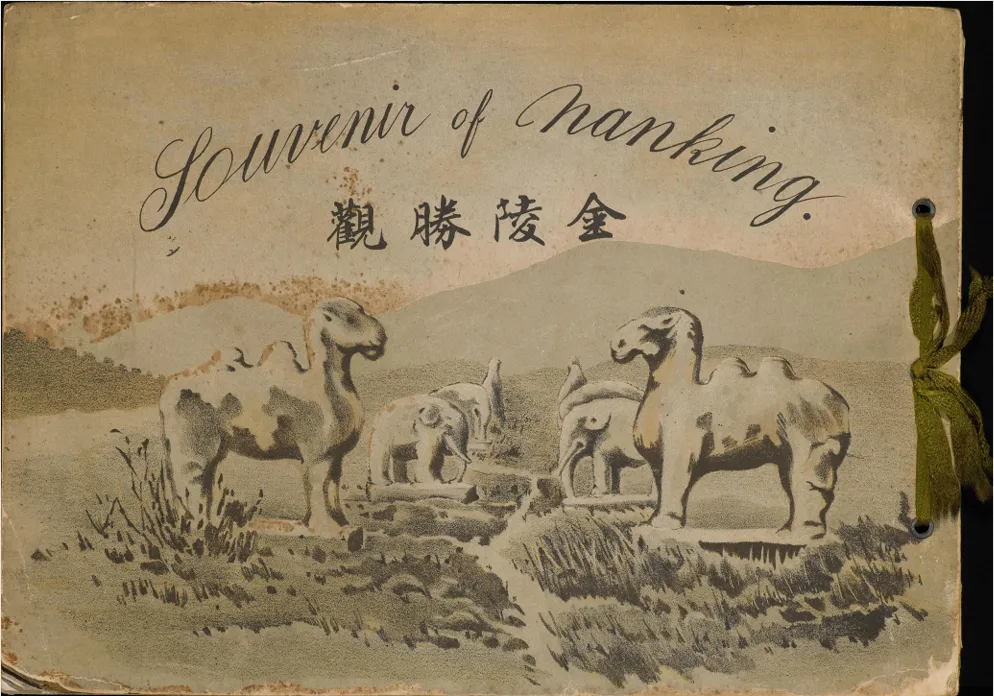 Souvenir of Nanking.
金陵勝觀